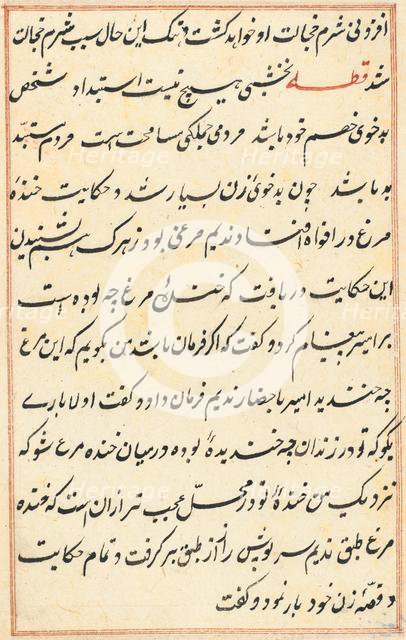 افزونی شرم خجالت او خواهد گشت و نیک این حال سبب شرم خجالت
شد قطعه نخشبی هیچ نیست استبداد شخص
بدخوی خصم خود باشد مردمی جملگی مسامحت است مردم مستبد
بد باشد چون بدخوئ زن بسیار شد و حکایت خندهٔ
مرغ در افواه افتاد ندیم مرغی بود زیرک بشنیدن
این حکایت دریافت که خندهٔ مرغ چه بوده است
بر امیر پیغام کرد و گفت که اگر فرمان باشد من بگویم که این مرغ
چه خندید امیر باحضار ندیم فرمان داد و گفت اولا بارے
بگو که تو در زندان چه خندیدهٔ بوده درمیان خنده مرغ شو که
نزدیک من خندهٔ تو در محل عجب تر ازان است که خنده
مرغ طبق ندیم سرپوش را از طبق برگرفت و تمام حکایت
و قصهٔ زن خود باز نمود و گفت
Heritage
Heritage
Heritage
Heritage
Heritage
Heritage